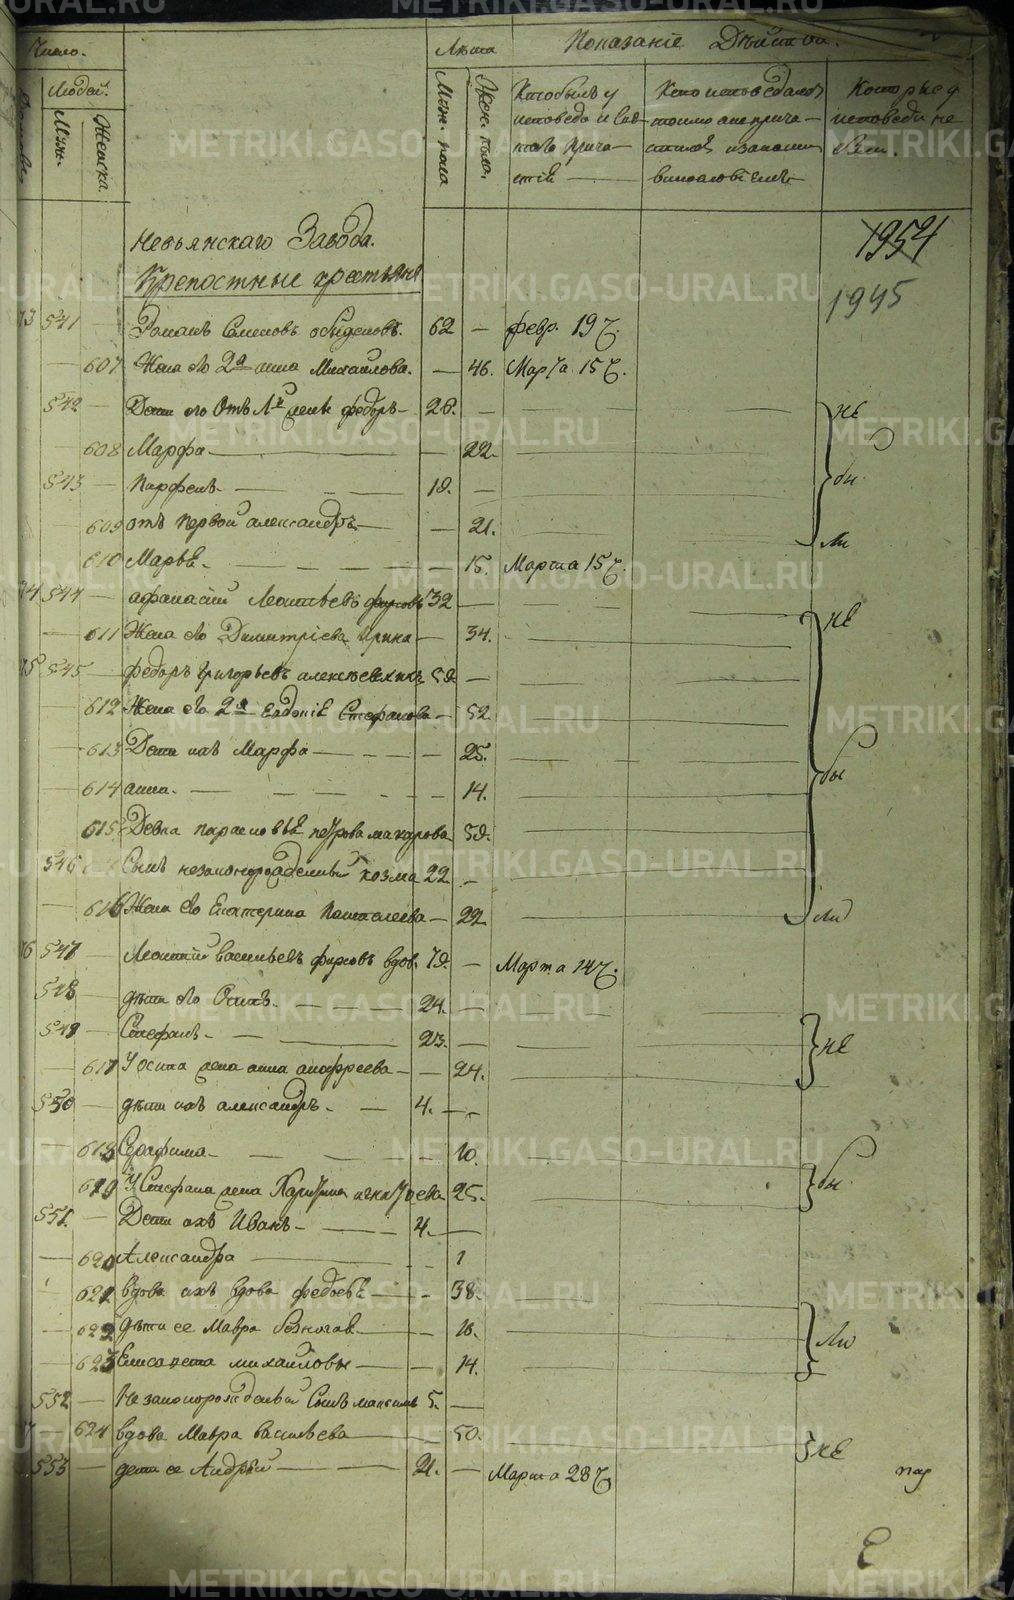 Число.
Лѣта
Показанiе Дѣйств
Людей.
Муж.
Женска.
Муж. пола
Жен. пола.
Кто былъ у исповеди и Свя-
таго прича-
стiя
Кто исповедался
токмо а не прича-
стился и за каким
винословiемъ
Которые у
исповеди не
были.
Невьянскаго Завода.
Крепостные крестьяня
1954
1945
541 — Романъ Семеновъ 62 — февр. 19
607 Жена его 2я анна Михайлова. — 46. Марта 15
542 — Дети его Отъ 1й жены федоръ 26. —
608 Марфа — 22.
543 — Парфенъ — 19. —
609 отъ первой александръ — 21.
610 Марья. — 15. Марта 15
544 афанасiй Леонтьевъ фирсовъ 32 —
611 Жена его Димитрiева Ирина — 34.
545 — федоръ Григорьевъ 59 —
612 Жена его 2я Евдокiя Стефанова — 52
613 Дети ихъ Марфа — 25.
614 анна. — 14.
615 Девка парасковья петрова макарова 59.
546 Сынъ незаконорожденный козма 22 —
616 Жена его Екатерина — 22
547 — Леонтiй васильевъ фирсовъ вдов. 79. — Марта 14
548 — дѣти его Осипъ — 24. —
549 — Стефанъ — 23. —
617 У осипа жена анна — 24.
550 — дѣти ихъ александръ — 4. —
618 Серафима — 10.
619 У Стефана жена 25.
551 — Дети ихъ Иванъ — 4. —
620 Александра — 1
621 вдова ихъ вдова — 38.
622 дѣти ее Мавра — 16.
623 Елисавета михайловы — 14.
552 — Незаконорожденный Сынъ максимъ 5. —
624 вдова Мавра васильева — 50.
553 — дети ее Андрей — 21. — Марта 28
не
бы
ли
не
бы
ли
не
бы
ли
не
METRIKI.GASO-URAL.RU